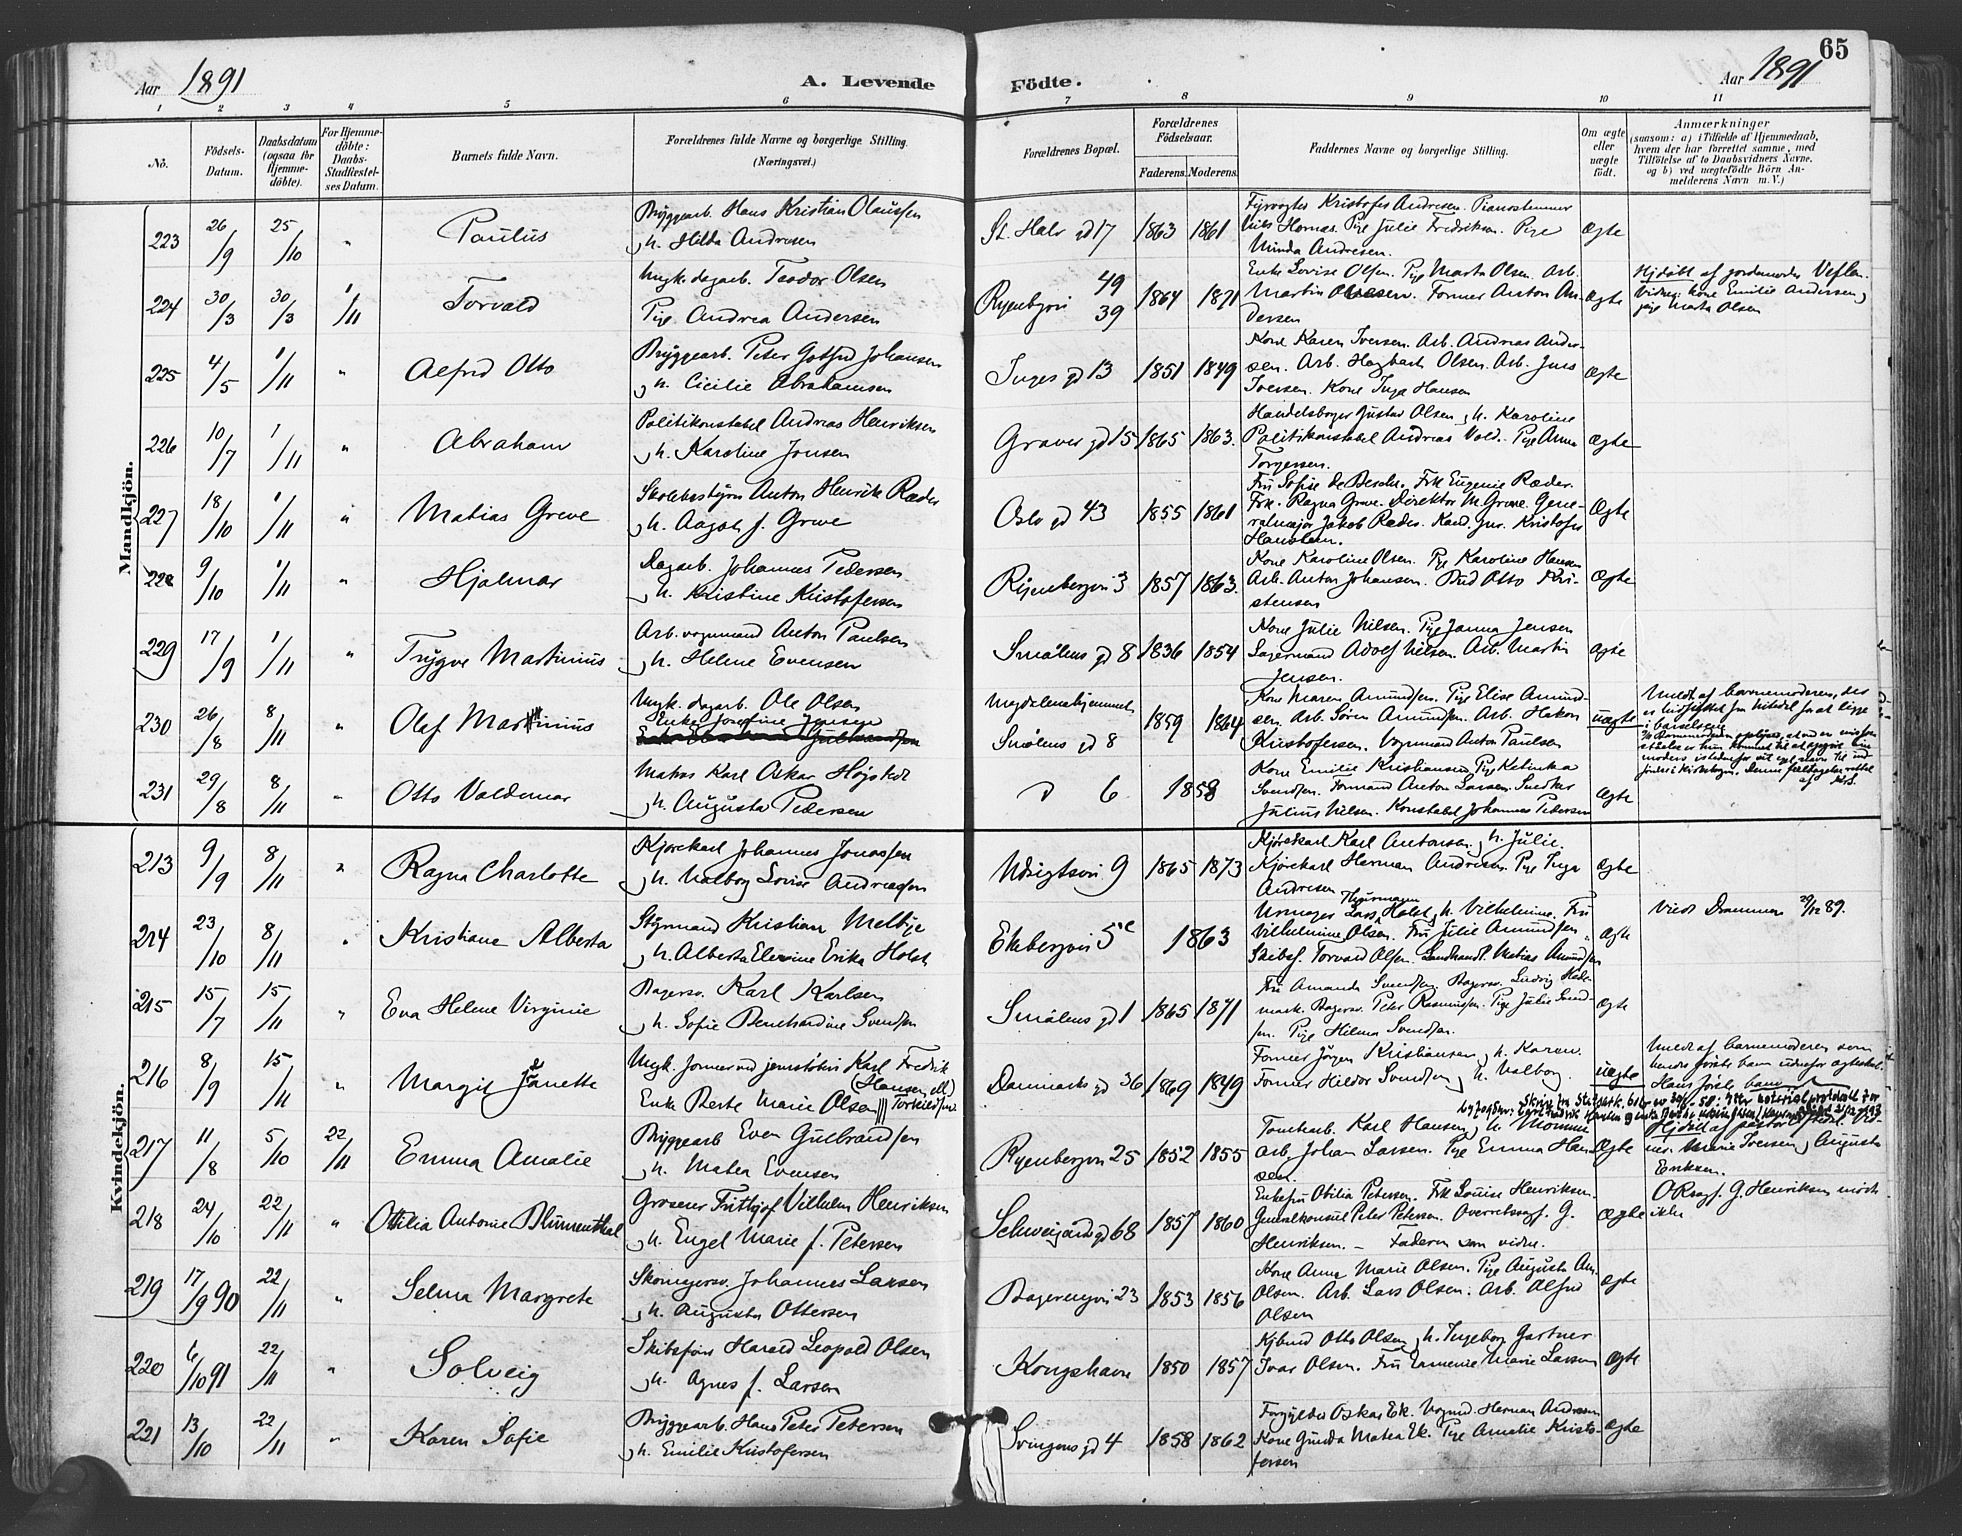 65
Aar 1891
A. Levende Födte.
Aar 1891
1 2 3 4 5 6 7 8 9 10 11
No.
Födsels-Datum.
Daabsdatum (ogsaa for Hjemme-döbte).
For Hjemme-döbte: Daabs-Stadfæstelses Datum.
Barnets fulde Navn.
Forældrenes fulde Navne og borgerlige Stilling. (Næringsvei.)
Forældrenes Bopæl.
Forældrenes Födselsaar.
Faderens. Moderens.
Faddernes Navne og borgerlige Stilling.
Om ægte eller uægte födt.
Anmærkninger
(saasom: a) i Tilfælde af Hjemmedaab, hvem der har forrettet samme, med Tilföielse af to Daabsvidners Navne, og b) ved uægtefödte Börn Anmelderens Navn m. V.)
Mandkjön.
223 26/9 25/10 " Paulus
Bryggearb. Hans Kristian Olaussen
H. Hilda Andresen
St. Halv gd 17 1863 1861
Fyrvogter Kristofer Andresen. Pianostemmer
Pige Julie Fredriksen. Pige
Minda Andresen.
Ægte
224 30/3 30/3 1/11 Torvald
Ungk. dagarb. Teodor Olsen
Pige Andrea Andersen
Ryenbgvn 49 39 1864 1871
Enke Lovise Olsen. Pige Marta Olsen. Arb.
Martin Olsen. Former Anton An-
dersen
Ægte
Hjdöbt af jordemoder
Vidner: Kone Emilie Andersen,
pige Marta Olsen
225 4/5 1/11 " Alfred Otto
Bryggearb. Peter Gotfred Johansen
H. Cicilie Abrahamsen
Inges gd 13 1851 1849
Kone Karen Iversen. Arb. Andreas Ander-
sen. Arb. Hagbart Olsen. Arb. Jens
Iversen. Kone Inga Hansen
Ægte
226 10/7 1/11 " Abraham
Politikonstabel Andreas Henriksen
H. Karoline Jonsen
Graver gd 15 1865 1863.
Handelsborger Gustav Olsen, H. Karoline
Politikonstabel Andreas Vold. Pige Anna
Torgersen.
Ægte
227 18/10 1/11 " Matias Greve
Skolebestyrer Anton Henrik Ræder
H. Aagot f. Greve
Oslo gd 43 1855 1861
Fru Sofie de Besche. Frk Eugenie Ræder.
Frk. Ragna Greve. Direktör M. Greve. Gene-
ralmajor Jakob Ræder. Kand. jur. Kristofer
Hansteen.
Ægte
228 9/10 1/11 " Hjalmar
Dagarb. Johannes Pedersen
H. Kristine Kristofersen
Ryenbergvn 3 1857 1863.
Kone Karoline Olsen. Pige Karoline Hansen
Arb. Anton Johansen. Bud Otto Kri-
stensen
Ægte
229 17/9 1/11 " Trygve Martinius
Arb. vognmand Anton Paulsen
H. Helene Evensen
Smålens gd 8 1836 1854
Kone Julie Nilsen. Pige Janna Jensen
Sagermand Adolf Nilsen. Arb. Martin
Jensen.
Ægte
230 26/8 8/11 " Olaf Martinius
Ungk. dagarb. Ole Olsen
Enke Josefine Jensen
Magdalenehjemmet
Smålens gd 8 1859 1864
Kone Maren Amundsen. Pige Elise Amund-
sen. Arb. Sören Amundsen. Arb. Hakon
Kristofersen. Vognmand Anton Paulsen
uægte
Meldt af barnemoderen, der
231 29/8 8/11 " Otto Valdemar
Matros Karl Oskar Höjstedt
H. Augusta Pedersen
d 6 1858
Kone Emilie Kristiansen. Pige Katinka
Svendsen. Formand Anton Larsen. Snedker
Julius Nilsen. Konstabel Johannes Pedersen
Ægte
Kvindekjön.
213 9/9 8/11 " Ragna Charlotte
Kjörekarl Johannes Jonassen
H. Valborg Lovise Andreassen
Udsigtsvn 9 1865 1873
Kjörekarl Karl Antonsen, H. Julie.
Kjörekarl Herman Andresen. Pige Inga
Andresen
Ægte
214 23/10 8/11 " Kristiane Alberta
Styrmand Kristian Melbye
H. Alberta Elevine Erika Holst
Ekebergvn 5c 1863
Thurmann
Urmager Lars Holst, H. Vilhelmine. Fru
Vilhelmine Olsen. Fru Julie Amundsen.
Skibsf. Torvard Olsen. Landhandl. Matias Amundsen
Ægte
Viede Drammen 29/12 89.
215 15/7 15/11 " Eva Helene Virginie
Bagersv. Karl Karlsen
H. Sofie Bernhardine Svendsen
Smålens gd 1 1865 1871
Fru Amanda Svendsen. Bagersv. Ludvig Hede-
mark. Bagersv. Peter Rasmussen. Pige Julie Svend-
sen. Pige Helma Svendsen.
Ægte
216 8/9 15/11 " Margit Janette
Ungk. former ved jernstöberi Karl Fredrik
(Hansen ell.)
Enke Berte Marie Olsen Torkildsen
Danmarks gd 36 1869 1849
Former Jörgen Kristiansen, H. Karen.
Former Hildor Svendsen, H. Valborg.
uægte
Meldt af barnemoderen som
hendes förste barn udenfor ægteskab.
Hans förste barn
217 11/8 5/10 22/11 Emma Amalie
Bryggearb Even Gulbrandsen
H. Matea Evensen
Ryenbergvn 25 1852 1855
Tomtearb. Karl Hansen, H.
Arb. Johan Larsen. Pige Emma Han-
sen.
Ægte
Hjdöbt af pastor
Marie Iversen, Augusta
Eriksen.
218 24/10 22/11 " Ottilia Antonie Blumenthal
Grosserer Frithjof Vilhelm Henriksen
H. Engel Marie f. Petersen
Schweigaards gd 68 1857 1860
Enkefru Otilia Petersen. Frk Louise Henriksen.
Generalkonsul Peter Petersen. Overretssagf. G.
Henriksen. – Faderen som vidne.
Ægte
ORsagf. G. Henriksen mödte
ikke
219 17/9 90 22/11 " Selma Margrete
Skomagersv. Johannes Larsen
H. Augusta Ottersen
Bagerengvn 23 1853 1856
Kone Anne Marie Olsen. Pige Augusta Am.
Olsen. Arb. Lars Olsen. Arb. Alfred
Olsen
Ægte
220 6/10 91 22/11 " Solveig
Skibsförer Harald Leopold Olsen
H. Agnes f. Larsen
Kongshavn 1850 1857
Kjbmd Otto Olsen, H. Ingeborg Gartner
Ivar Olsen. Fru Emmerie Marie Larsen
Ægte
221 13/10 22/11 " Karen Sofie
Bryggearb. Hans Peter Petersen
H. Emilie Kristofersen
Svingens gd 4 1858 1862
Forgylder Oskar Ek. Vognmd Herman Andersen
Kone Gunda Matea Ek. Pige Amalie Kristo-
fersen
Ægte